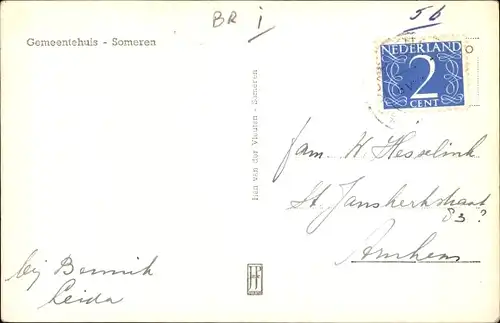 BR i
56
Gemeentehuis - Someren
NEDERLAND
2
CENT
Han van der Vleuten - Someren
fam. W. Hesselink
St. Janskerkstraat
83?
Arnhem
bij Bennink
Leida